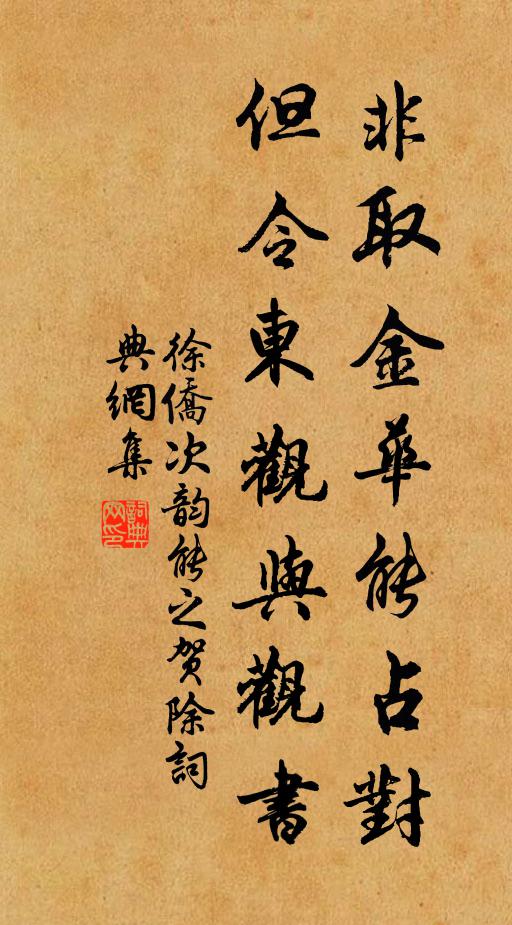 非取金華能占對
但令東觀與觀書
徐僑次韵能之贺除詞
典網集
詞典網印